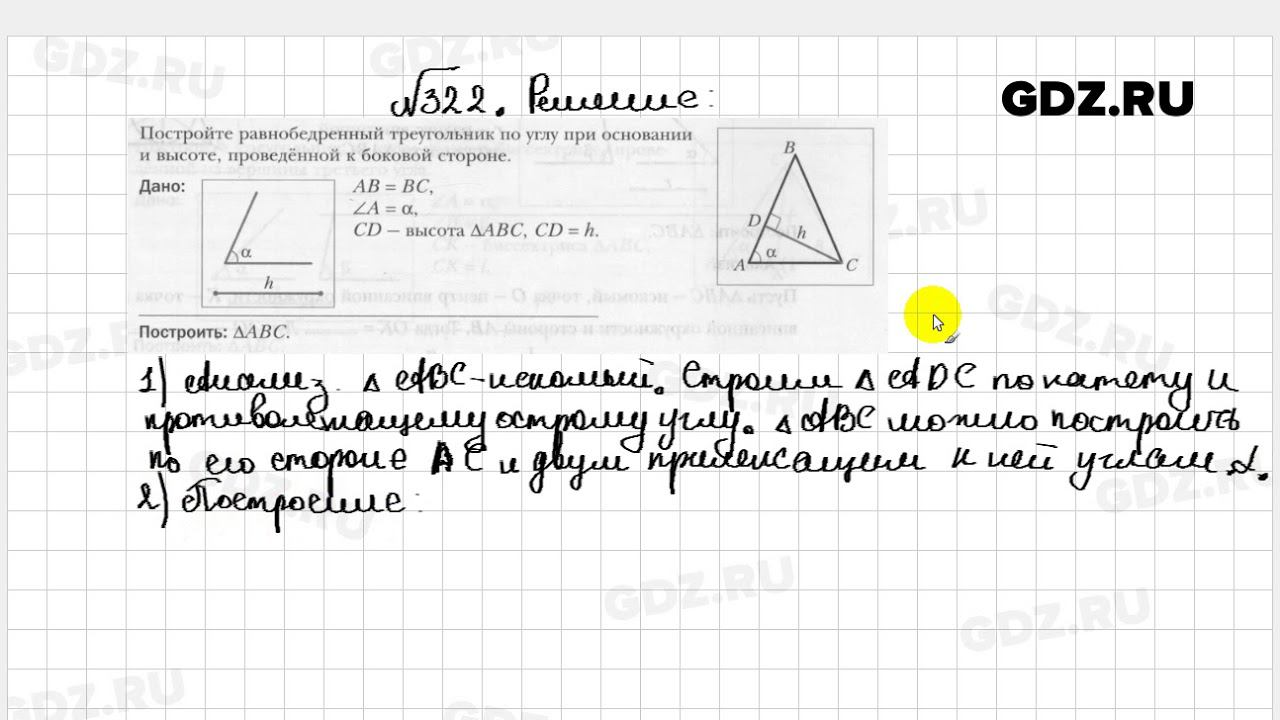 GDZ.RU
№322. Решение:
Постройте равнобедренный треугольник по углу при основании
и высоте, проведённой к боковой стороне.
Дано:
α
h
AB = BC,
∠A = α,
CD – высота ΔABC, CD = h.
B
D
h
α
A
C
Построить: ΔABC.
1) Анализ. Δ ABC-искомый. Строим Δ ADC по катету и
противолежащему острому углу. Δ ABC можно построить
по его стороне AC и двум прилежащим к ней углам α.
2) Построение:
GDZ.RU
GDZ.RU
GDZ.RU
GDZ.RU
GDZ.RU
GDZ.RU
GDZ.RU
GDZ.RU
GDZ.RU